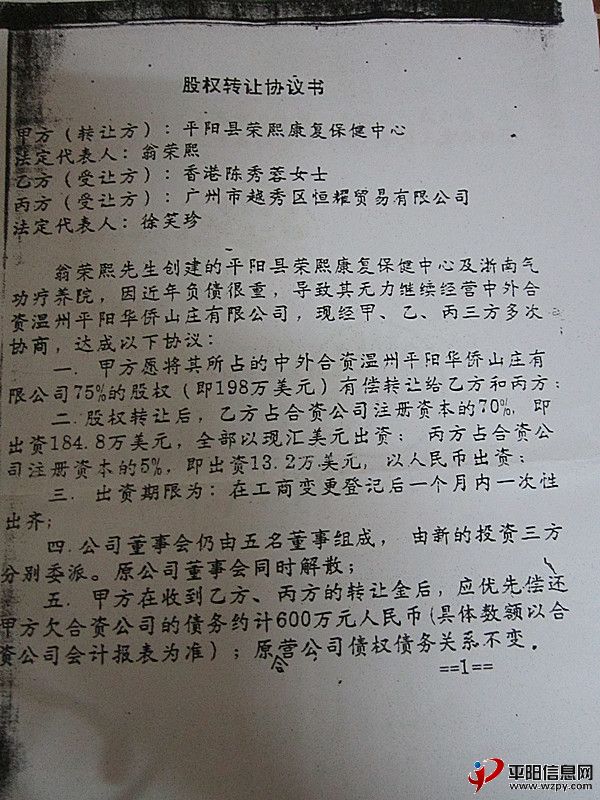 股权转让协议书
甲方（转让方）：平阳县荣熙康复保健中心
法定代表人：翁荣熙
乙方（受让方）：香港陈秀蓉女士
丙方（受让方）：广州市越秀区恒耀贸易有限公司
法定代表人：徐笑珍
翁荣熙先生创建的平阳县荣熙康复保健中心及浙南气
功疗养院，因近年负债很重，导致其无力继续经营中外合
资温州平阳华侨山庄有限公司，现经甲、乙、丙三方多次
协商，达成以下协议：
一. 甲方愿将其所占的中外合资温州平阳华侨山庄有
限公司75%的股权（即198万美元）有偿转让给乙方和丙方；
二. 股权转让后，乙方占合资公司注册资本的70%，即
出资184.8万美元，全部以现汇美元出资； 丙方占合资公
司注册资本的5%，即出资13.2万美元，以人民币出资；
三. 出资期限为：在工商变更登记后一个月内一次性
出齐；
四. 公司董事会仍由五名董事组成， 由新的投资三方
分别委派。原公司董事会同时解散；
五. 甲方在收到乙方、丙方的转让金后，应优先偿还
甲方欠合资公司的债务约计600万元人民币（具体数额以合
资公司会计报表为准）；原营公司债权债务关系不变。
合
==1==
平阳信息网
www.wzpy.com